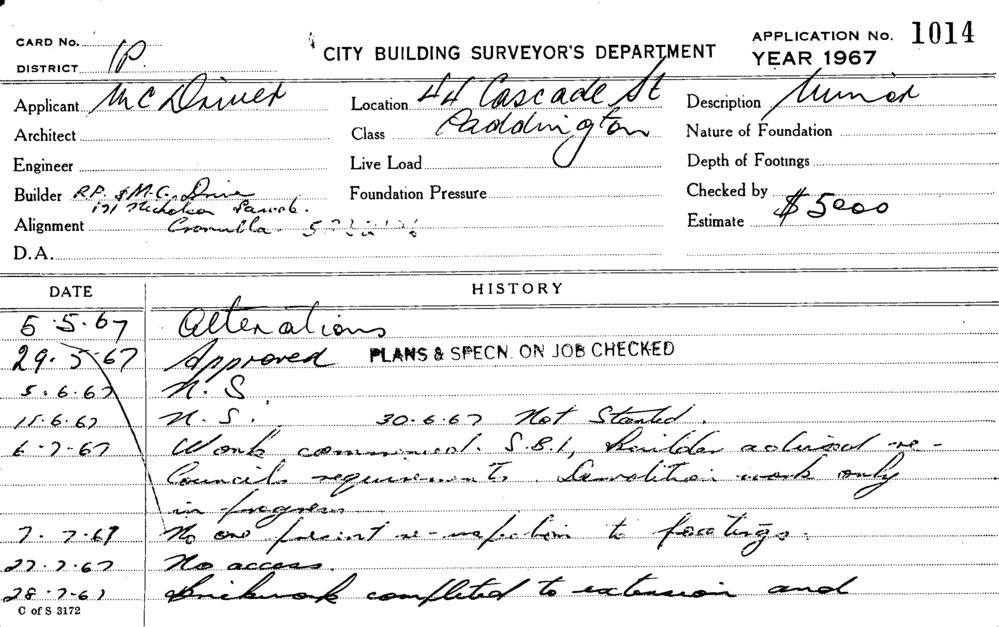 CARD No.
DISTRICT 1P.
CITY BUILDING SURVEYOR'S DEPARTMENT
APPLICATION No. 1014
YEAR 1967
Applicant Mc Driver
Location 44 Cascade St
Paddington
Description Minor
Architect
Class
Nature of Foundation
Engineer
Live Load
Depth of Footings
Builder R.P. & M.C. Driver
171 Nicholson Parade.
Cronulla.
Foundation Pressure
Checked by
Alignment
Estimate $5000
D.A.
DATE HISTORY
5.5.67 Alterations
29.5.67 Approved PLANS & SPECN. ON JOB CHECKED
5.6.67 N.S.
15.6.67 N.S. 30.6.67 Not Started.
6-7-67 Work commenced. S.B.1, Builder advised re-
Councils requirements. Demolition work only
in progress
7.7.67 No one present re-inspection to footings.
27.7.67 No access.
28-7-67 Brickwork completed to extension and
C of S 3172